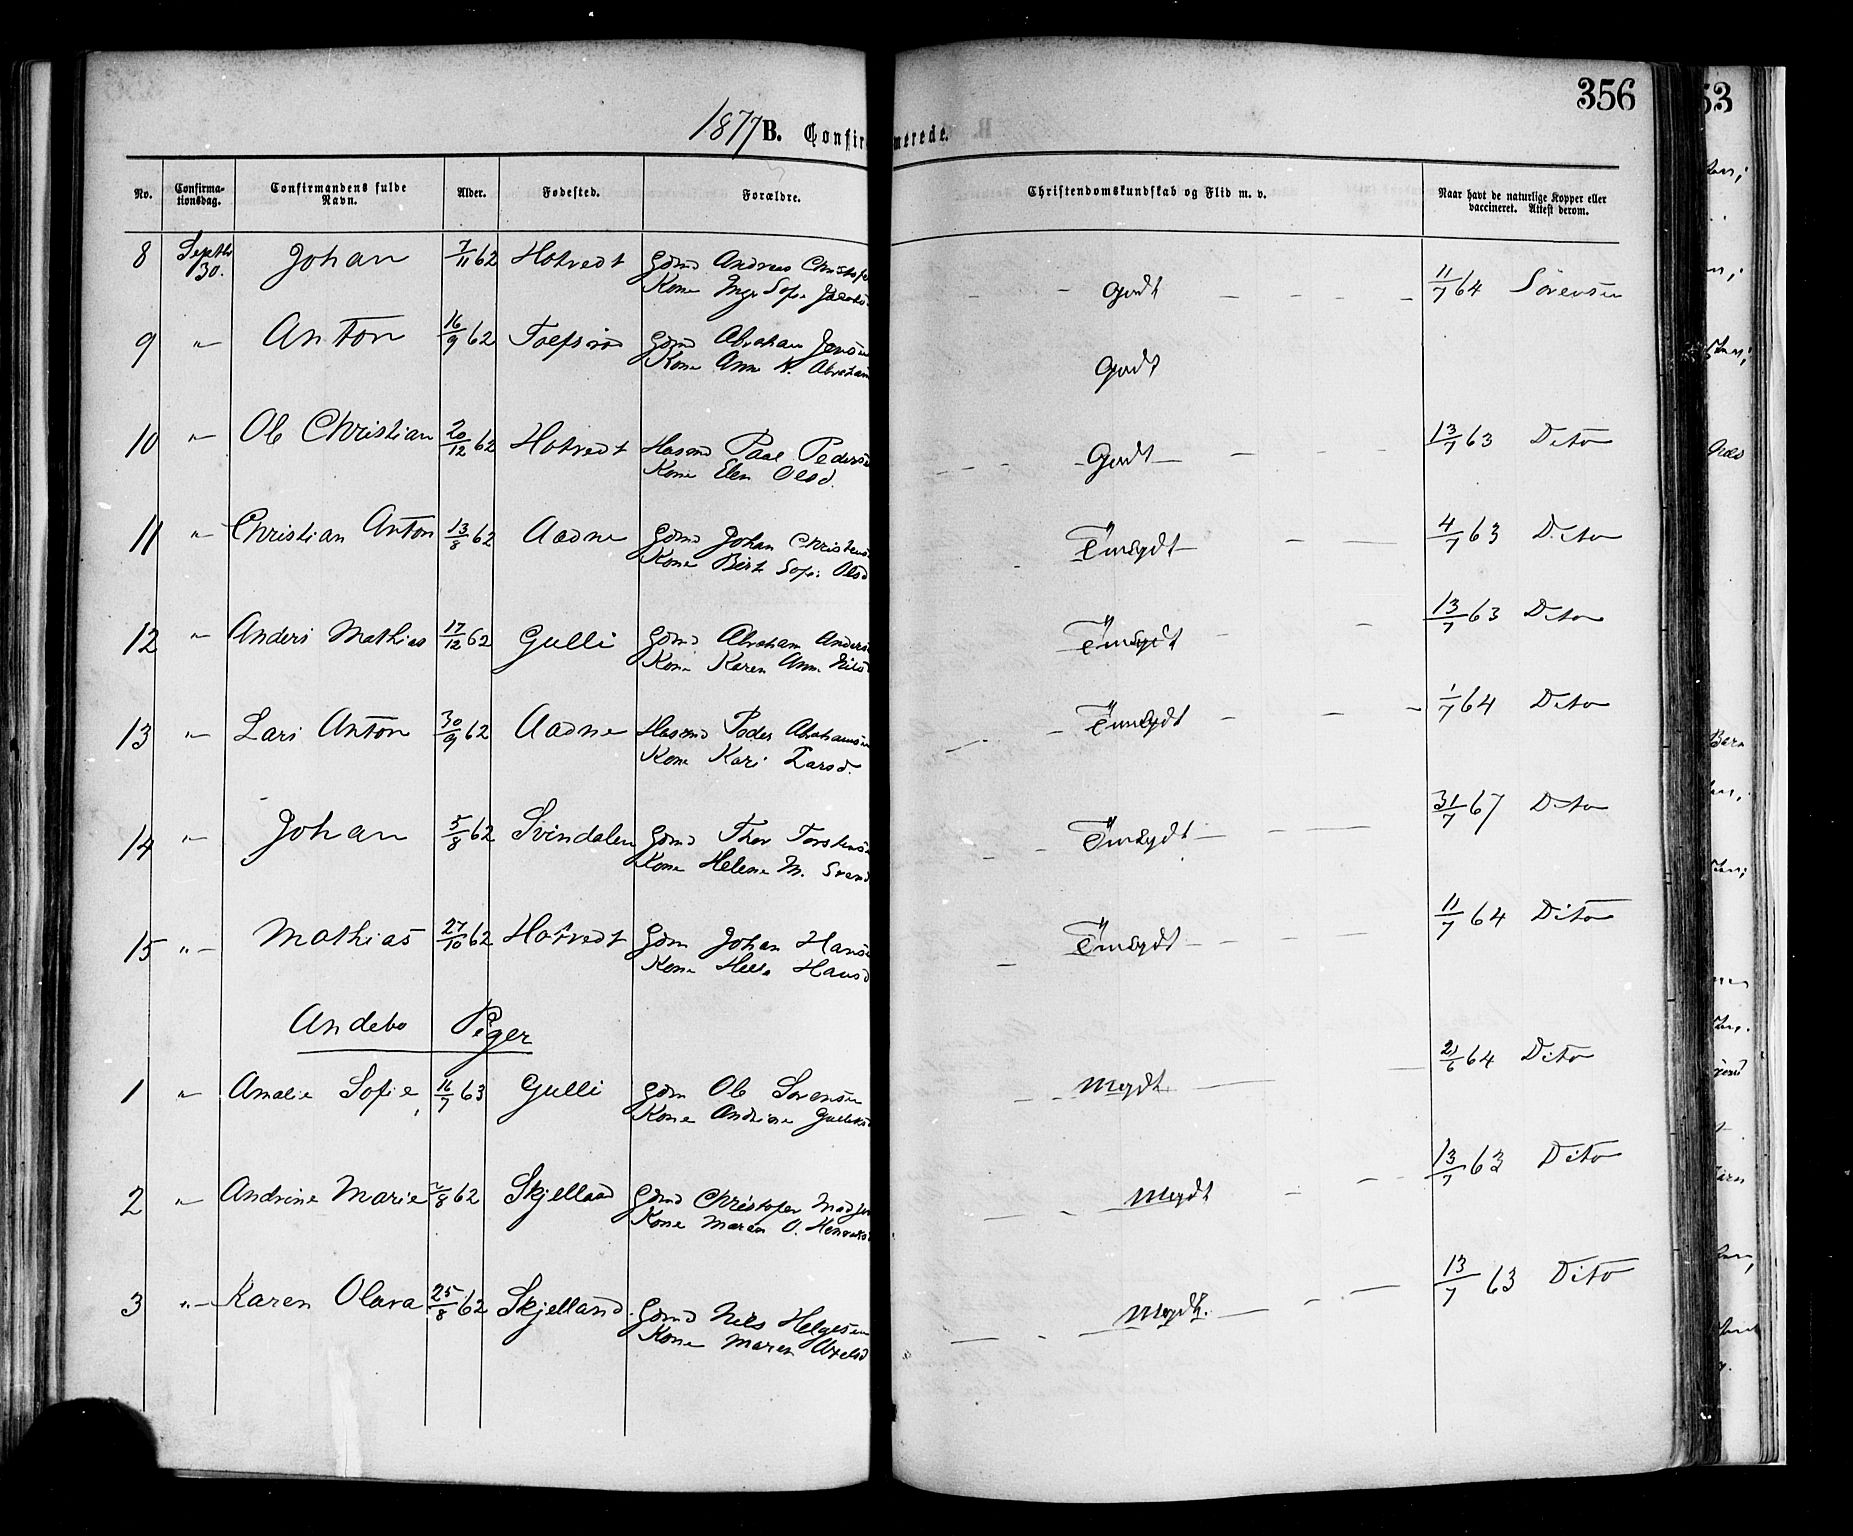 356
1877 B. Confirmerede.
No. Confirmationsdag. Confirmandens fulde Navn. Alder. Fødested. Forældre. Christendomskundskab og Flid m. v. Naar havt de naturlige Kopper eller vaccineret. Attest derom.
8 Septbr 30. Johan 7/11 62 Hotvedt Gdmd Andreas Christof
Kone Inge Sofie Jacobs
Godt 11/7 64 Sörensen
9 " Anton 16/9 62 Gdmd Abraham Jensen
Kone Anne K. Abraham
Godt
10 " Ole Christian 20/12 62 Hotvedt Husmd Paal Peders
Kone Elen Olsd.
Godt 13/7 63 Dito
11 " Christian Anton 13/8 62 Aadne Gdmd Johan Christens
Kone Birt Sofi Olsd
4/7 63 Dito
12 " Anders Mathias 17/12 62 Gulli Gdmd Abraham Anders
Kone Karen Ann. Nils
13/7 63 Dito
13 " Lars Anton 30/9 62 Aadne Husmd Peder Abrahams
Kone Kari Larsd.
1/7 64 Dito
14 " Johan 5/8 62 Svindalen Gdmd Thor Torstens
Kone Helene M. Svend
31/7 67 Dito
15 " Mathias 27/10 62 Hotvedt Gdm Johan Hans
Kone Hansd
11/7 64 Dito
Andebo Piger
1 " Amalie Sofie 16/7 63 Gulli Gdm Ole Sorensen
Kone Andrine
Megdt 21/6 64 Dito
2 " Andrine Marie /8 62 Skjelland Gdmd Christofer Madsen
Kone Maren O.
Megdt 13/7 63 Dito
3 " Karen Olava 25/8 62 Skjelland Gdmd Nils Helgesen
Kone Maren Axelsd
Megdt. 13/7 63 Dito